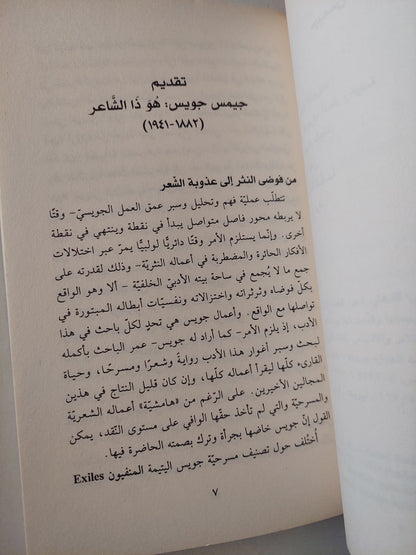 تقديم
جيمس جويس: هُوَ ذَا الشَّاعر
(١٨٨٢-١٩٤١)
من فوضى النثر إلى عذوبة الشّعر
تتطلّب عملية فهم وتحليل وسبر عمق العمل الجويسيّ- وقتًا
لا يربطه محور فاصل متواصل يبدأ في نقطة وينتهي في نقطة
أخرى. وإنّما يستلزم الأمر وقتًا دائريًّا لولبيًّا يمرّ عبر اختلالات
الأفكار الحائرة والمضطربة في أعماله النثريّة- وذلك لقدرته على
جمع ما لا يُجمع في ساحة بيته الأدبيّ الخلفيّة - ألا وهو الواقع
بكلّ فوضاه وثرثراته واختزالاته ونفسيّات أبطاله المبتورة في
تواصلها مع الواقع. وأعمال جويس هي تحدٍ لكلّ باحث في هذا
الأدب، إذ يلزم الأمر- كما أراد له جويس- عمر الباحث بأكمله
لبحث وسبر أغوار هذا الأدب روايةً وشعرًا ومسرحًا، وحياة
القارىء كلّها ليقرأ أعماله كلّها، وإن كان قليل النتاج في هذين
المجالين الأخيرين. على الرّغم من «هامشيّة» أعماله الشعريّة
والمسرحيّة والتي لم تأخذ حقّها الوافي على مستوى النّقد، يمكن
القول إنّ جويس خاضها بجرأة وترك بصمته الحاضرة فيها.
أختُلف حول تصنيف مسرحيّة جويس اليتيمة المنفيون Exiles
٧